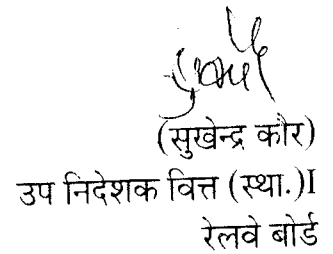 (सुखेन्द्र कौर)
उप निदेशक वित्त (स्था.)I
रेलवे बोर्ड